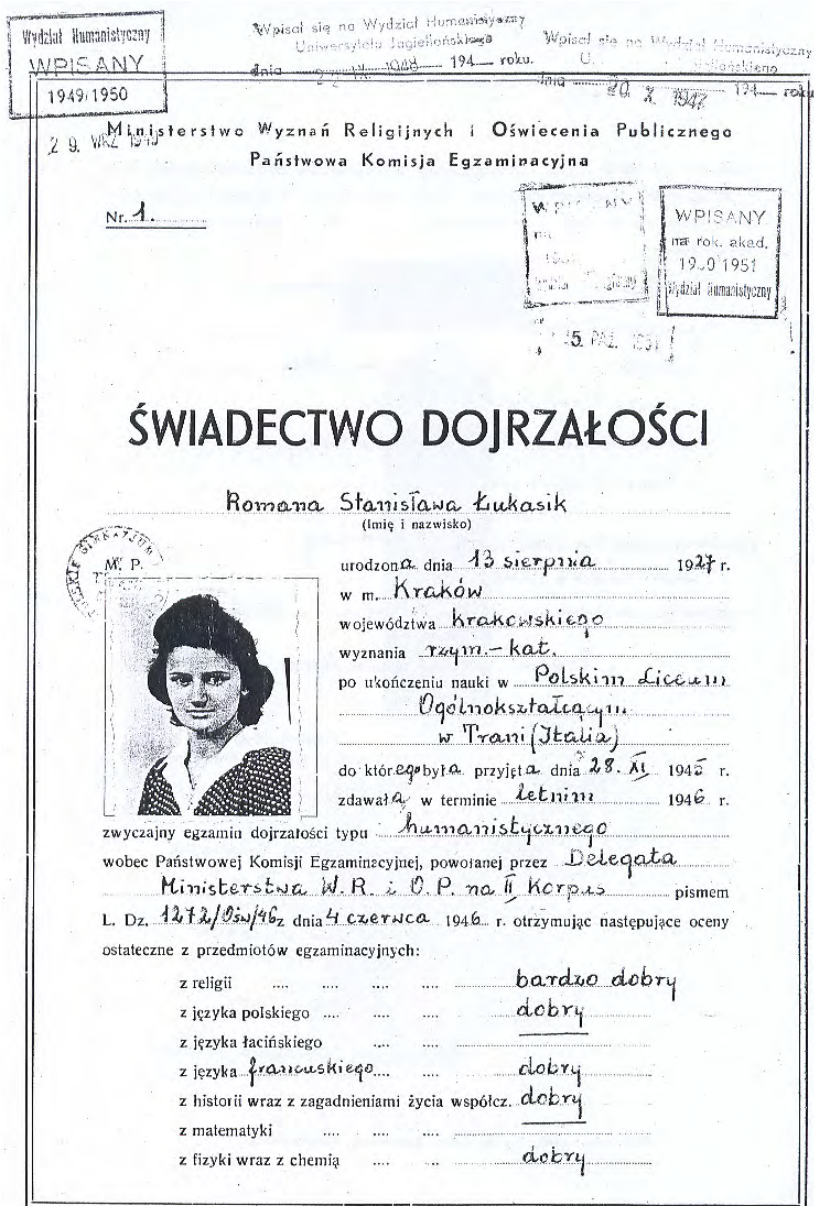 Wydział Humanistyczny
WPISANY
1949/1950
Wpisał się na Wydział Humanistyczny
Uniwersytetu Jagiellońskiego
dnia 1948 194 roku.
Wpisał się na Wydział Humanistyczny
U. Jagiellońskiego
dnia 20. X. 1947 194 roku
29. WRZ 1949
Ministerstwo Wyznań Religijnych i Oświecenia Publicznego
Państwowa Komisja Egzaminacyjna
Nr. 1.
WPISANY
na rok. akad.
19 0 1951
Wydział Humanistyczny
5. PAŹ. 1951
ŚWIADECTWO DOJRZAŁOŚCI
Romana Stanisława Łukasik
(Imię i nazwisko)
M. P.
urodzona dnia 13 sierpnia 1927 r.
w m. Kraków
województwa Krakowskiego
wyznania rzym.-kat.
po ukończeniu nauki w Polskim Liceum
Ogólnokształcącym
w Trani (Italia)
do którego była przyjęta dnia 28. XI 1945 r.
zdawała w terminie letnim 1946 r.
zwyczajny egzamin dojrzałości typu humanistycznego
wobec Państwowej Komisji Egzaminacyjnej, powołanej przez Delegata
Ministerstwa W. R. i O. P. na II Korpus pismem
L. Dz. 1272/Ośw/46 z dnia 4 czerwca 1946 r. otrzymując następujące oceny
ostateczne z przedmiotów egzaminacyjnych:
z religii .... .... .... .... bardzo dobry
z języka polskiego .... .... .... dobry
z języka łacińskiego .... ....
z języka francuskiego .... .... dobry
z historii wraz z zagadnieniami życia współcz. dobry
z matematyki .... .... ....
z fizyki wraz z chemią .... .. .... dobry